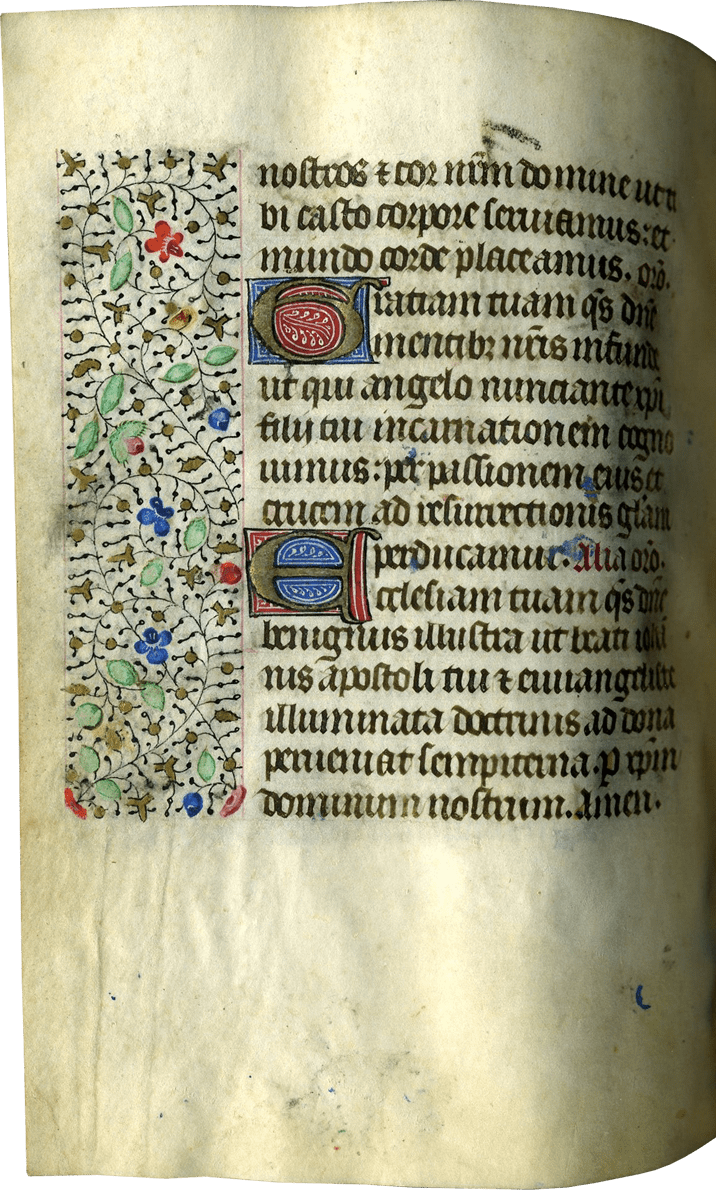 nostros ⁊ cor nr̄m domine ut ti
bi casto corpore seruiamus: et
mundo corde placeamus. orō.
Gratiam tuam q̄s dn̄e
mentibꝫ nr̄is infunde
ut qui angelo nunciante xp̄i
filij tui incarnationem cogno
uimus: per passionem eius et
crucem ad resurrectionis gl̄am
perducamur. Alia orō.
Ecclesiam tuam q̄s dn̄e
benignus illustra ut beati ioh̄a
nis apostoli tui ⁊ euuangeliste
illuminata doctrinis ad dona
perueniat sempiterna. p̲ xp̄m
dominum nostrum. Amen.